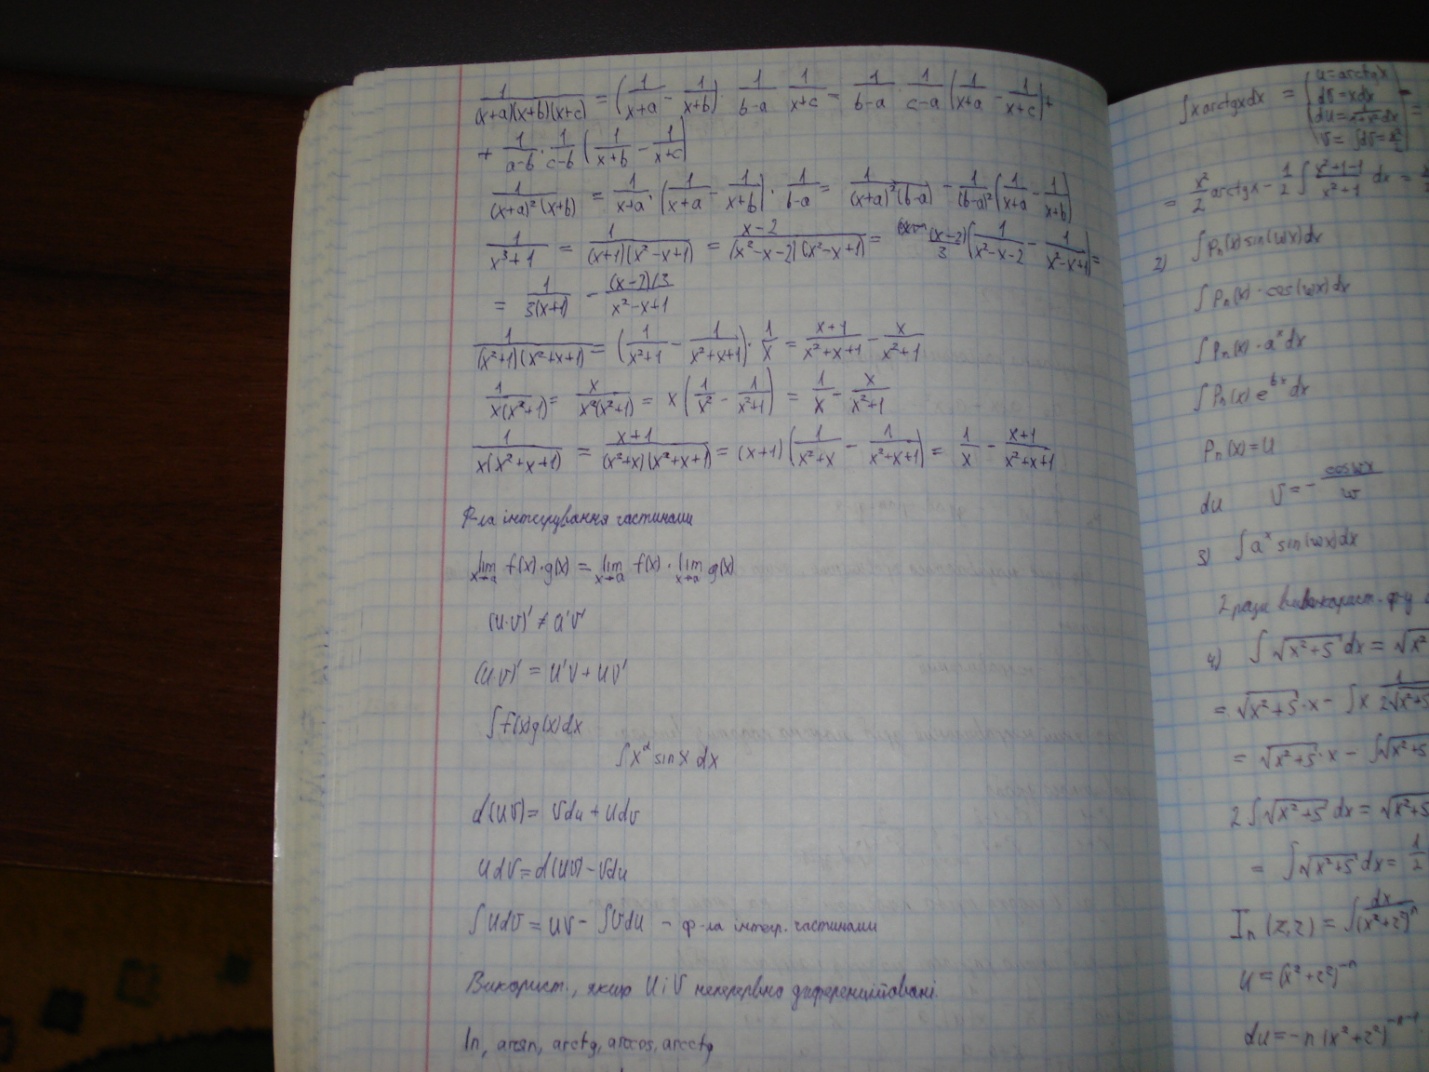 1/((x+a)(x+b)(x+c)) = (1/(x+a) - 1/(x+b)) · 1/(b-a) · 1/(x+c) = 1/(b-a) · 1/(c-a) (1/(x+a) - 1/(x+c)) +
+ 1/(a-b) · 1/(c-b) (1/(x+b) - 1/(x+c))
1/((x+a)²(x+b)) = 1/(x+a) · (1/(x+a) - 1/(x+b)) · 1/(b-a) = 1/((x+a)²(b-a)) - 1/(b-a)² (1/(x+a) - 1/(x+b))
1/(x³+1) = 1/((x+1)(x²-x+1)) = (x-2)/((x²-x-2)(x²-x+1)) = (x-2)/3 (1/(x²-x-2) - 1/(x²-x+1)) =
= 1/(3(x+1)) - ((x-2)/3)/(x²-x+1)
1/((x²+1)(x²+x+1)) = (1/(x²+1) - 1/(x²+x+1)) · 1/x = (x+1)/(x²+x+1) - x/(x²+1)
1/(x(x²+1)) = x/(x²(x²+1)) = x (1/x² - 1/(x²+1)) = 1/x - x/(x²+1)
1/(x(x²+x+1)) = (x+1)/((x²+x)(x²+x+1)) = (x+1) (1/(x²+x) - 1/(x²+x+1)) = 1/x - (x+1)/(x²+x+1)
Ф-ла інтегрування частинами
lim x→a f(x)·g(x) = lim x→a f(x) · lim x→a g(x)
(u·v)' ≠ u'v'
(u·v)' = u'v + uv'
∫f(x)g(x)dx
∫x^α sin x dx
d(uv) = vdu + udv
udv = d(uv) - vdu
∫udv = uv - ∫vdu - ф-ла інтегр. частинами
Використ., якщо u і v неперервно диференційовані.
ln, arcsin, arctg, arccos, arcctg
∫x arctgx dx =
u = arctgx
dv = xdx
v = ∫dv = x²/2
= x²/2 arctgx - 1/2 ∫ (x²+1-1)/(x²+1) dx =
2) ∫Pn(x) sin(wx)dx
∫Pn(x) · cos(wx)dx
∫Pn(x) · a^x dx
∫Pn(x) e^(bx) dx
Pn(x) = u
du v = - coswx/w
3) ∫a^x sin(wx)dx
2 рази використ. ф-у
4) ∫√(x²+5) dx = √x²
= √(x²+5) · x - ∫x 1/(2√(x²+5
= √(x²+5) · x - ∫√(x²+5
2∫√(x²+5) dx = √(x²+5
= ∫√(x²+5) dx = 1/2
In (z,z) = ∫dx/(x²+z²)^n
u = (x²+z²)^(-n)
du = -n(x²+z²)^(-n-1)